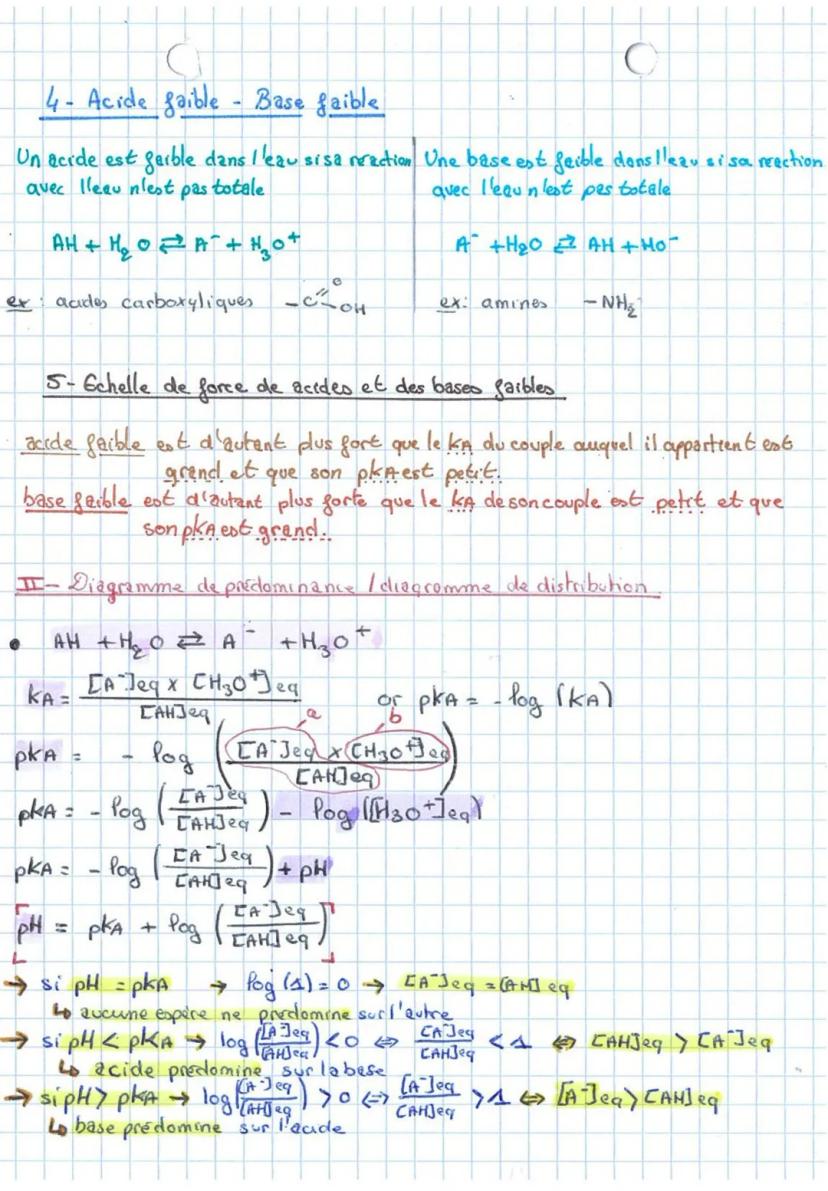 4 - Acide faible - Base faible
Un acide est faible dans l'eau si sa réaction
avec l'eau n'est pas totale
AH + H₂O ⇄ A⁻ + H₃O⁺
ex : acides carboxyliques -C(=O)-OH
Une base est faible dans l'eau si sa réaction
avec l'eau n'est pas totale
A⁻ + H₂O ⇄ AH + HO⁻
ex: amines -NH₂
5 - Echelle de force de acides et des bases faibles
acide faible est d'autant plus fort que le KA du couple auquel il appartient est
grand et que son pKA est petit.
base faible est d'autant plus forte que le KA de son couple est petit et que
son pKA est grand.
II - Diagramme de prédominance / diagramme de distribution
• AH + H₂O ⇄ A⁻ + H₃O⁺
KA = [A⁻]eq x [H₃O⁺]eq / [AH]eq or pKA = - log (KA)
a b
pKA = - log ([A⁻]eq x [H₃O⁺]eq / [AH]eq)
pKA = - log ([A⁻]eq / [AH]eq) - log ([H₃O⁺]eq)
pKA = - log ([A⁻]eq / [AH]eq) + pH
pH = pKA + log ([A⁻]eq / [AH]eq)
→ si pH = pKA → log (1) = 0 → [A⁻]eq = [AH]eq
↳ aucune espèce ne prédomine sur l'autre
→ si pH < pKA → log ([A⁻]eq / [AH]eq) < 0 ⇔ [A⁻]eq / [AH]eq < 1 ⇔ [AH]eq > [A⁻]eq
↳ acide prédomine sur la base
→ si pH > pKA → log ([A⁻]eq / [AH]eq) > 0 ⇔ [A⁻]eq / [AH]eq > 1 ⇔ [A⁻]eq > [AH]eq
↳ base prédomine sur l'acide